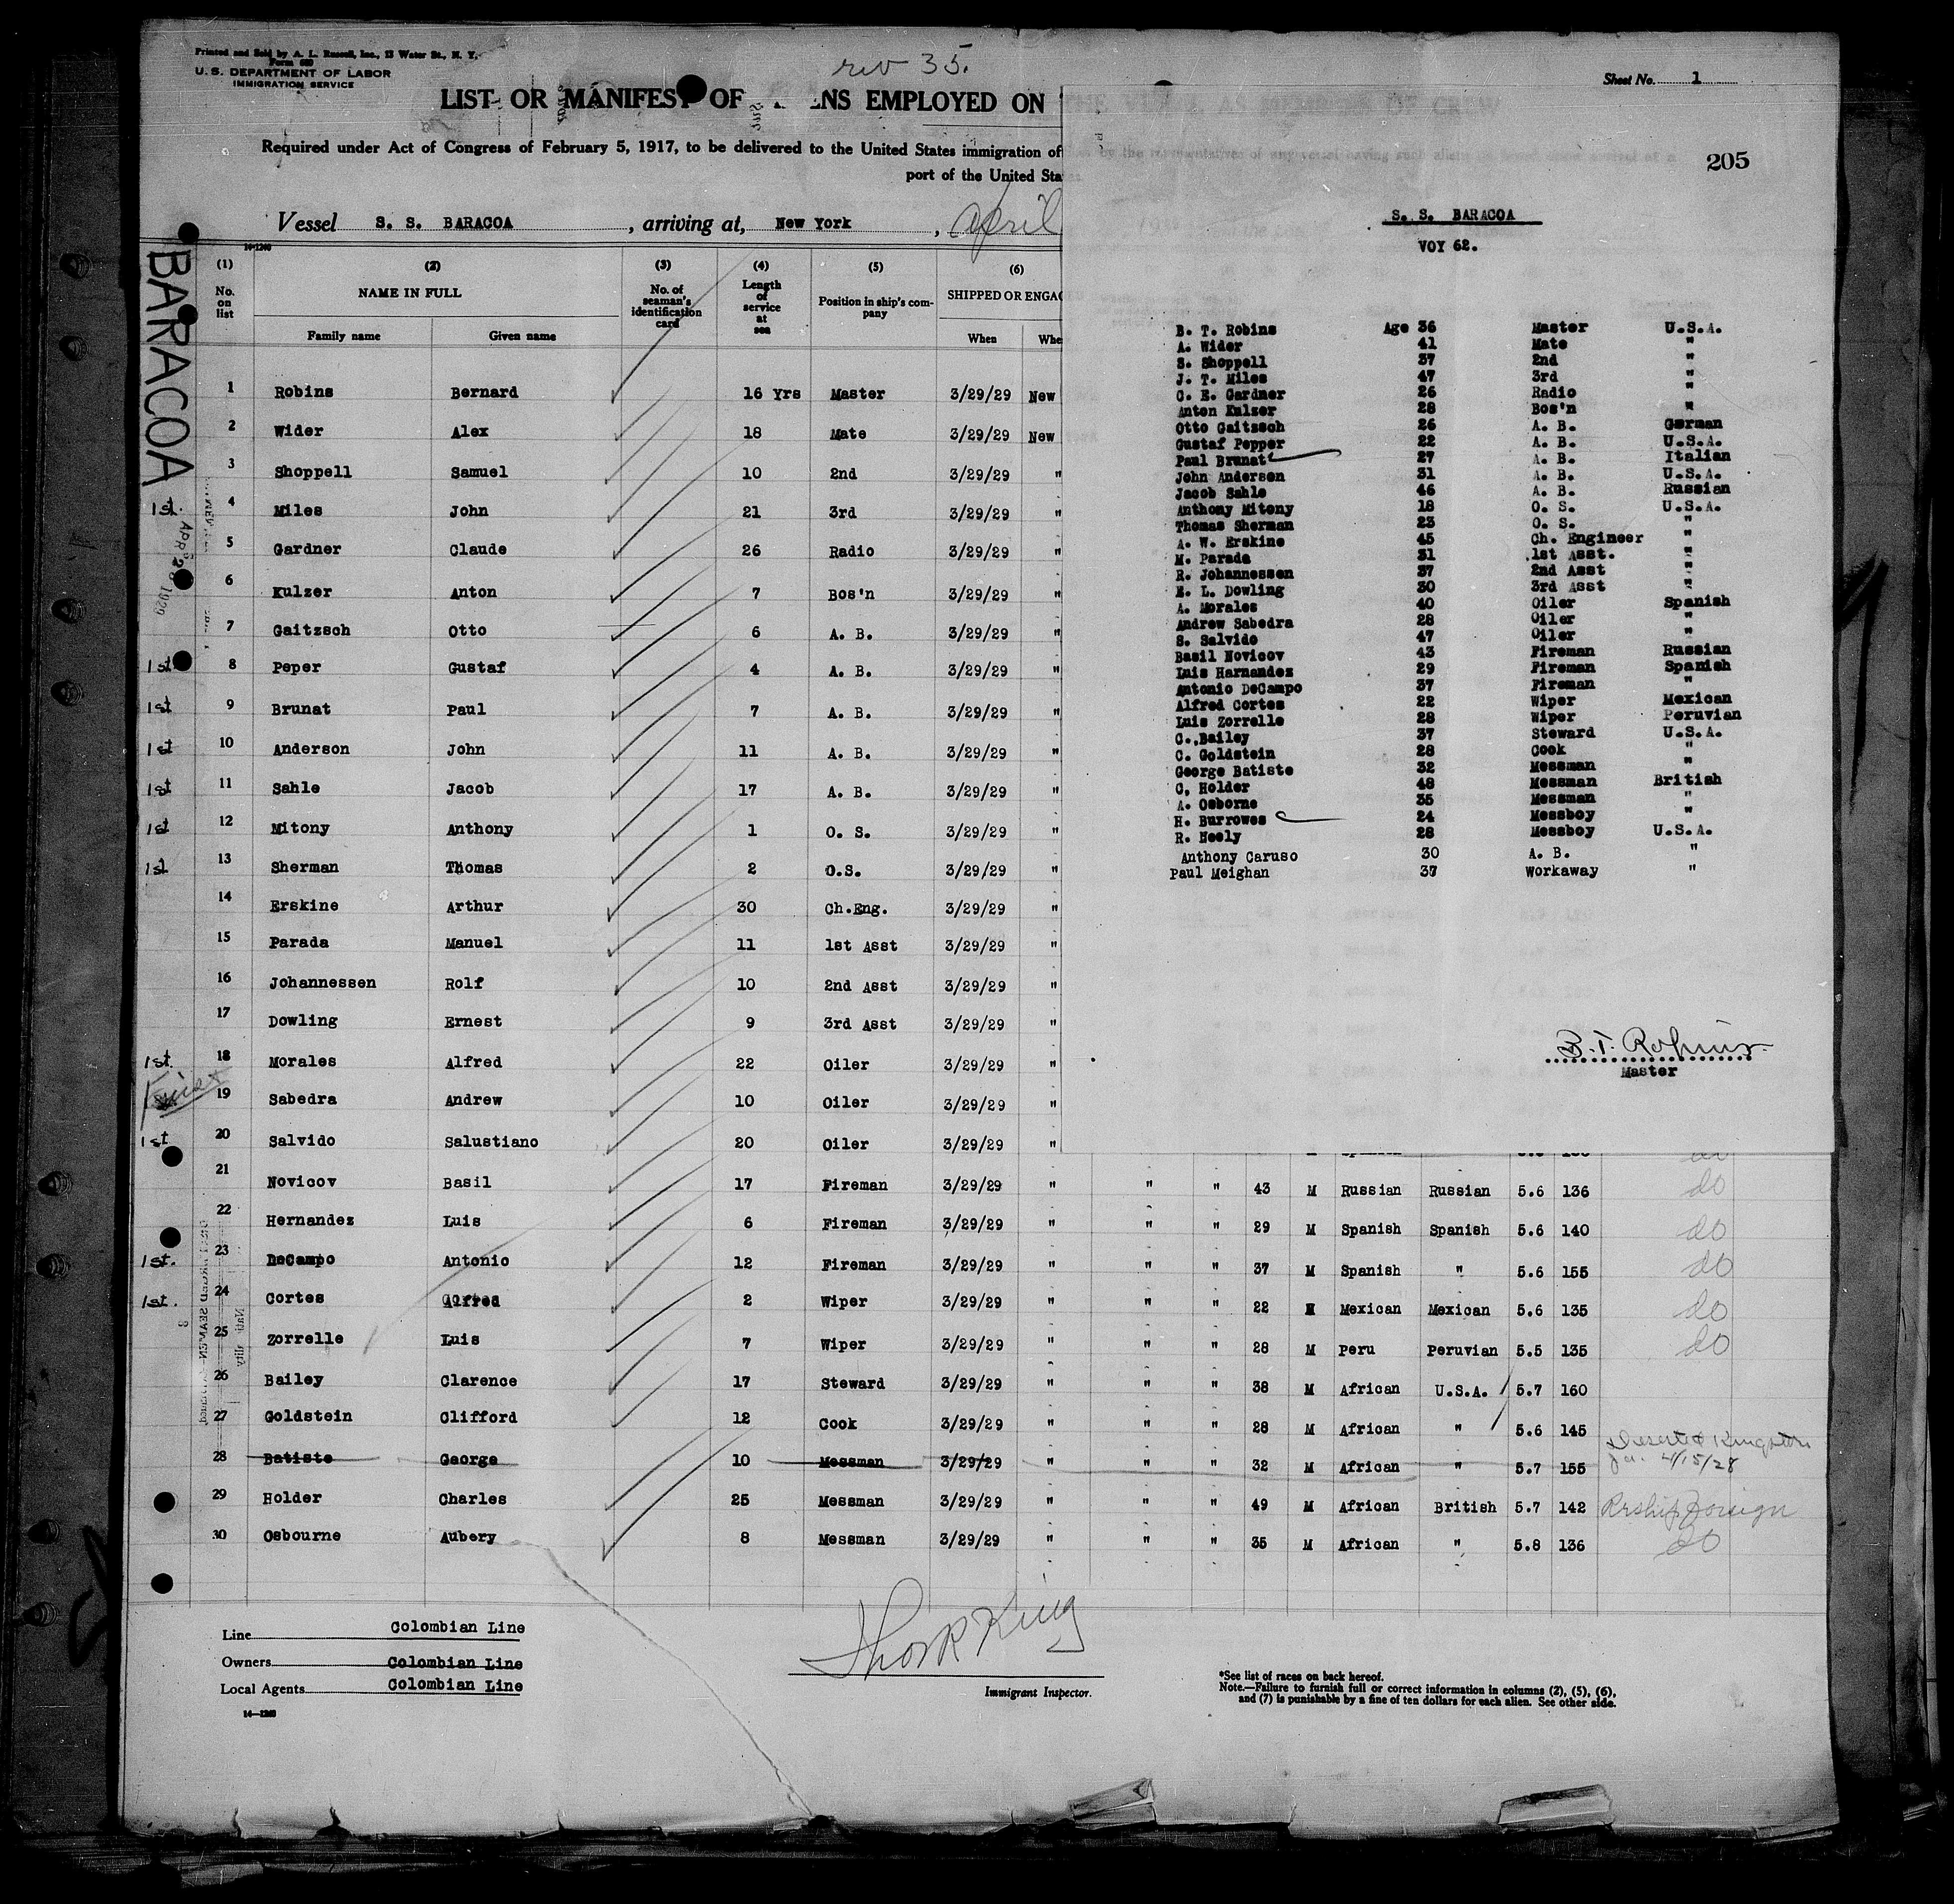 Printed and Sold by A. L. Russell, Inc., 13 Water St., N. Y.
U. S. DEPARTMENT OF LABOR
IMMIGRATION SERVICE
rev 35.
Sheet No. 1
LIST OR MANIFEST OF ENS EMPLOYED ON
Required under Act of Congress of February 5, 1917, to be delivered to the United States immigration of
port of the United Sta
205
Vessel S. S. BARACOA, arriving at, New York, April
BARACOA
APR 2 1929
(1) (2) (3) (4) (5) (6)
No. on list NAME IN FULL No. of seaman's identification card Length of service at sea Position in ship's company SHIPPED OR ENGAG
Family name Given name When Whe
1 Robins Bernard 16 Yrs Master 3/29/29 New
2 Wider Alex 18 Mate 3/29/29 New
3 Shoppell Samuel 10 2nd 3/29/29 "
1st. 4 Miles John 21 3rd 3/29/29 "
5 Gardner Claude 26 Radio 3/29/29 "
6 Kulzer Anton 7 Bos'n 3/29/29 "
7 Gaitzsch Otto 6 A. B. 3/29/29 "
1st 8 Peper Gustaf 4 A. B. 3/29/29 "
1st 9 Brunat Paul 7 A. B. 3/29/29 "
1st 10 Anderson John 11 A. B. 3/29/29 "
1st 11 Sahle Jacob 17 A. B. 3/29/29 "
1st 12 Mitony Anthony 1 O. S. 3/29/29 "
1st 13 Sherman Thomas 2 O.S. 3/29/29 "
14 Erskine Arthur 30 Ch.Eng. 3/29/29 "
15 Parada Manuel 11 1st Asst 3/29/29 "
16 Johannessen Rolf 10 2nd Asst 3/29/29 "
17 Dowling Ernest 9 3rd Asst 3/29/29 "
1st. 18 Morales Alfred 22 Oiler 3/29/29 "
First 19 Sabedra Andrew 10 Oiler 3/29/29 "
1st 20 Salvido Salustiano 20 Oiler 3/29/29 "
21 Novicov Basil 17 Fireman 3/29/29 " " " 43 M Russian Russian 5.6 136 do
22 Hernandez Luis 6 Fireman 3/29/29 " " " 29 M Spanish Spanish 5.6 140 do
1st. 23 DeCampo Antonio 12 Fireman 3/29/29 " " " 37 M Spanish " 5.6 155 do
1st. 24 Cortes Alfred 2 Wiper 3/29/29 " " " 22 M Mexican Mexican 5.6 135 do
25 Zorrelle Luis 7 Wiper 3/29/29 " " " 28 M Peru Peruvian 5.5 135 do
26 Bailey Clarence 17 Steward 3/29/29 " " " 38 M African U.S.A. 5.7 160
27 Goldstein Clifford 12 Cook 3/29/29 " " " 28 M African " 5.6 145
28 Batiste George 10 Messman 3/29/29 " " " 32 M African " 5.7 155 Deserted Kingston Ja. 4/15/28
29 Holder Charles 25 Messman 3/29/29 " " " 49 M African British 5.7 142 Reship foreign
30 Osbourne Aubery 8 Messman 3/29/29 " " " 35 M African " 5.8 136 do
Line Colombian Line
Owners Colombian Line
Local Agents Colombian Line
14-1268
Thos R King
Immigrant Inspector.
*See list of races on back hereof.
Note.—Failure to furnish full or correct information in columns (2), (5), (6),
and (7) is punishable by a fine of ten dollars for each alien. See other side.
S. S. BARACOA
VOY 62.
B. T. Robins Age 36 Master U.S.A.
A. Wider 41 Mate "
S. Shoppell 37 2nd "
J. T. Miles 47 3rd "
C. E. Gardner 26 Radio "
Anton Kulzer 28 Bos'n "
Otto Gaitzsch 26 A. B. German
Gustaf Pepper 22 A. B. U.S.A.
Paul Brunat 27 A. B. Italian
John Andersen 31 A. B. U.S.A.
Jacob Sahle 46 A. B. Russian
Anthony Mitony 18 O. S. U.S.A.
Thomas Sherman 23 O. S. "
A. W. Erskine 45 Ch. Engineer "
M. Parada 31 1st Asst. "
R. Johannessen 37 2nd Asst "
E. L. Dowling 30 3rd Asst "
A. Morales 40 Oiler Spanish
Andrew Sabedra 28 Oiler "
S. Salvido 47 Oiler "
Basil Novicov 43 Fireman Russian
Luis Harnandez 29 Fireman Spanish
Antonio DeCampo 37 Fireman "
Alfred Cortes 22 Wiper Mexican
Luis Zorrelle 28 Wiper Peruvian
C. Bailey 37 Steward U.S.A.
C. Goldstein 28 Cook "
George Batiste 32 Messman "
C. Holder 48 Messman British
A. Osborne 35 Messman "
H. Burrowes 24 Messboy "
R. Neely 28 Messboy U.S.A.
Anthony Caruso 30 A. B. "
Paul Meighan 37 Workaway "
B. T. Robins
Master